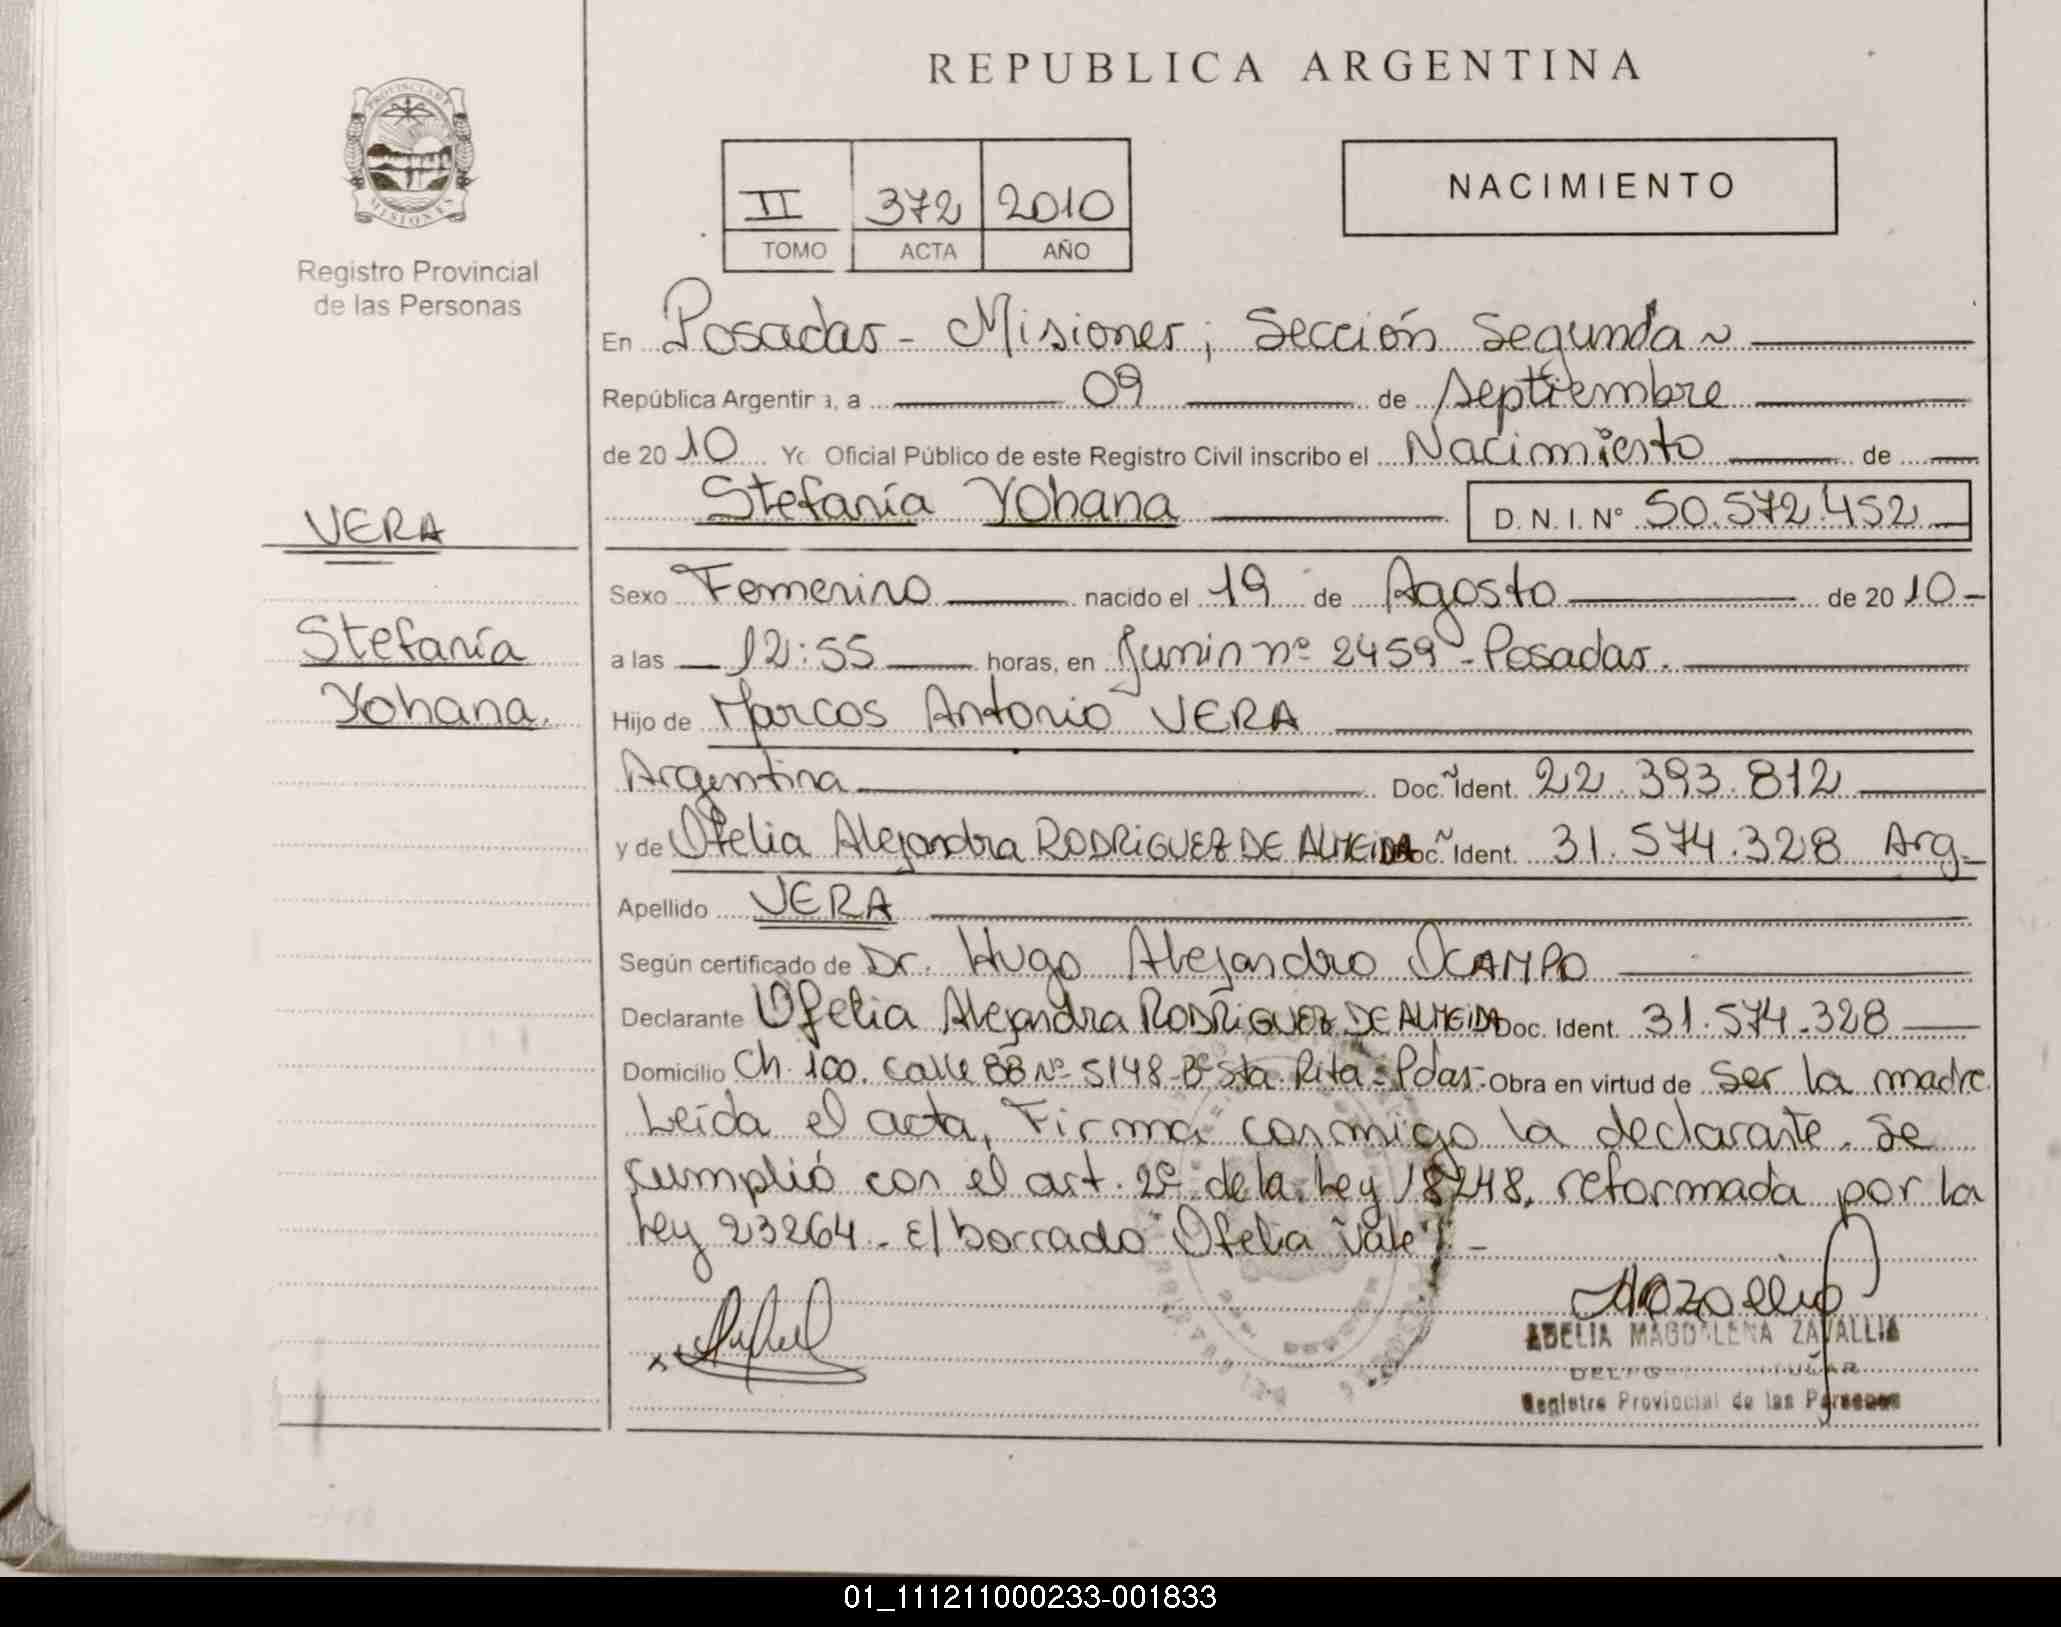 REPUBLICA ARGENTINA
PROVINCIA DE MISIONES
Registro Provincial
de las Personas
NACIMIENTO
II 372 2010
TOMO ACTA AÑO
En Posadas - Misiones; Sección Segunda ~
República Argentina, a 09 de Septiembre
de 2010 Yo Oficial Público de este Registro Civil inscribo el Nacimiento de
Stefanía Yohana D. N. I. Nº 50.572.452
VERA
Stefanía
Yohana.
Sexo Femenino nacido el 19 de Agosto de 2010-
a las 12:55 horas, en Junin nº 2459 - Posadas.
Hijo de Marcos Antonio VERA
Argentina Doc. Ident. 22.393.812
y de Ofelia Alejandra RODRiGUEZ DE ALMEiDA Doc. Ident. 31.574.328 Arg-
Apellido VERA
Según certificado de Dr. Hugo Alejandro OCAMPO
Declarante Ofelia Alejandra RODRiGUEZ DE ALMEiDA Doc. Ident. 31.574.328
Domicilio Ch. 100. calle 8B Nº 5148-Bº Sta. Rita - Pdas- Obra en virtud de ser la madre
Leída el acta, Firma conmigo la declarante. Se
cumplió con el art. 2º de la Ley 18248, reformada por la
Ley 23264. E/ borrado "Ofelia" Vale. -
ADELIA MAGDALENA ZAVALLIA
Registro Provincial de las Personas
01_111211000233-001833